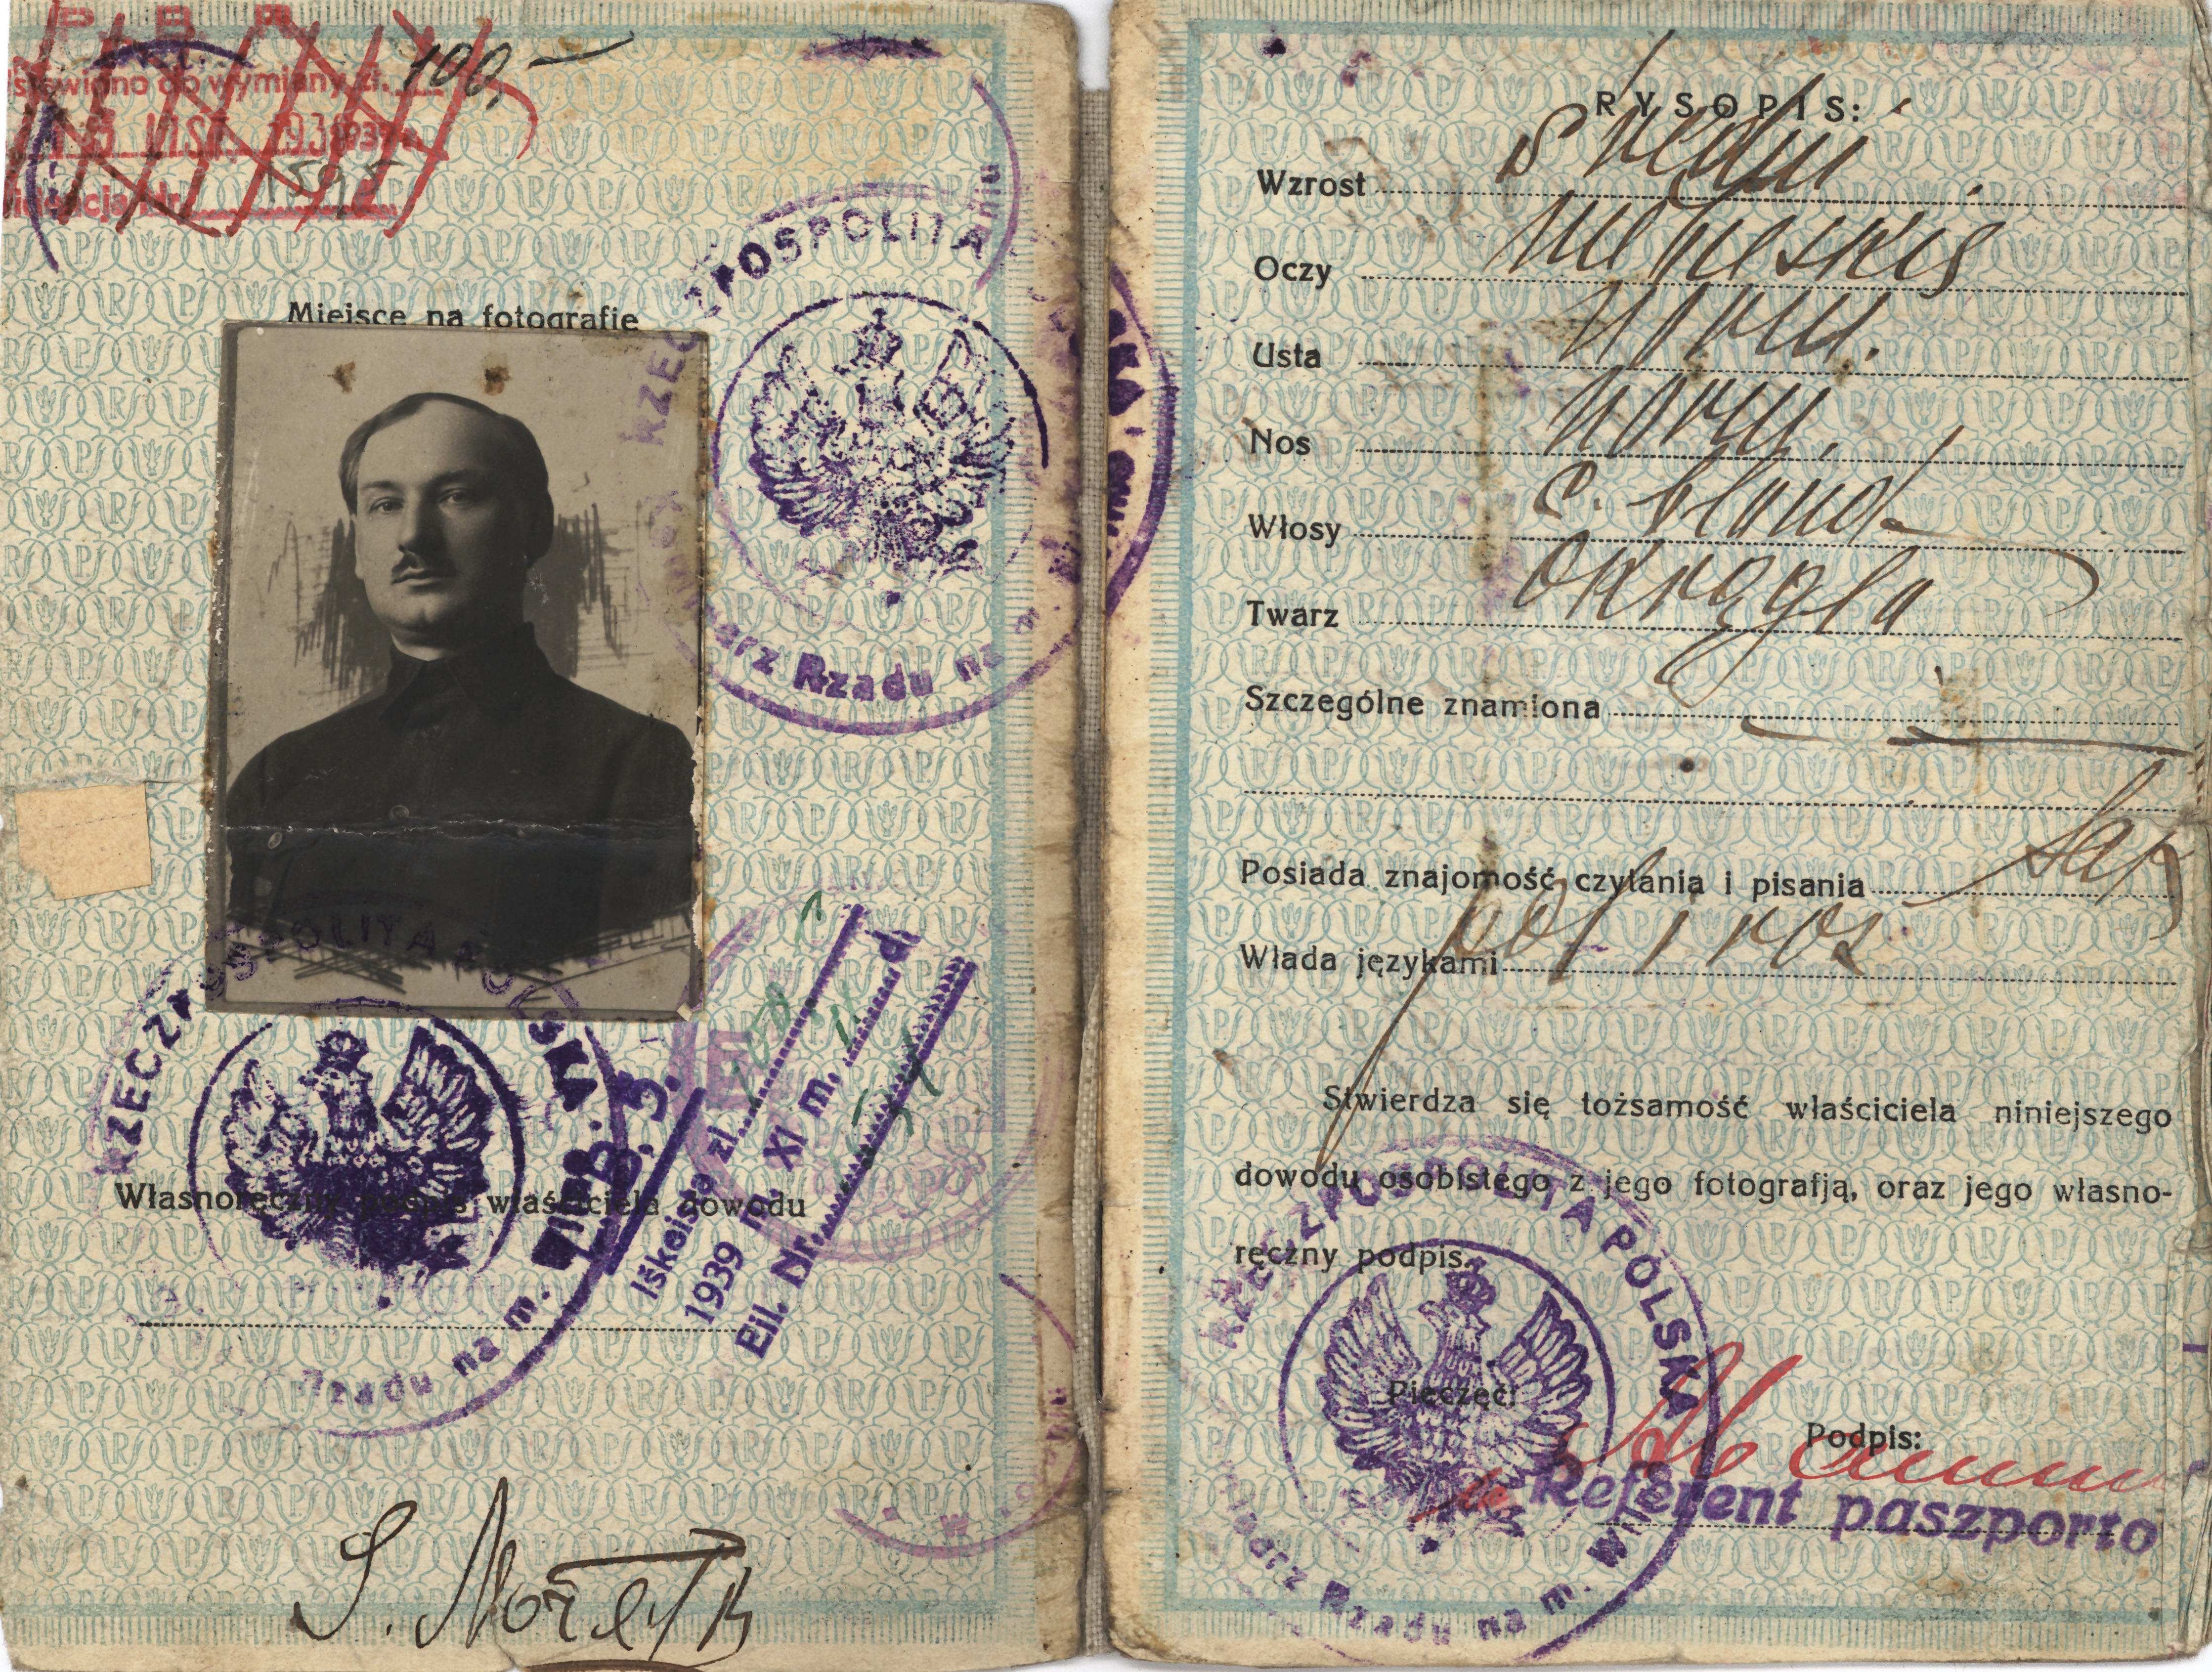 100,—
stawiono do wymiany zł.
1939
1595
Nr.
Miejsce na fotografię
RZECZPOSPOLITA
Rządu na m.
RZECZPOSPOLITA POLSKA
Rządu na m.
B. 3.
Iškeista zl. 100
1939 m. XI m. 11 d.
Eil. Nr.
Własnoręczny podpis właściciela dowodu
RYSOPIS:
Wzrost średni
Oczy niebieskie
Usta norm.
Nos norm.
Włosy c. blond
Twarz okrągła
Szczególne znamiona —
Posiada znajomość czytania i pisania
Włada językami pol i ros
Stwierdza się tożsamość właściciela niniejszego
dowodu osobistego z jego fotografją, oraz jego własno-
ręczny podpis.
RZECZPOSPOLITA POLSKA
Rządu na m.
Pieczęć:
Podpis:
Referent paszporto